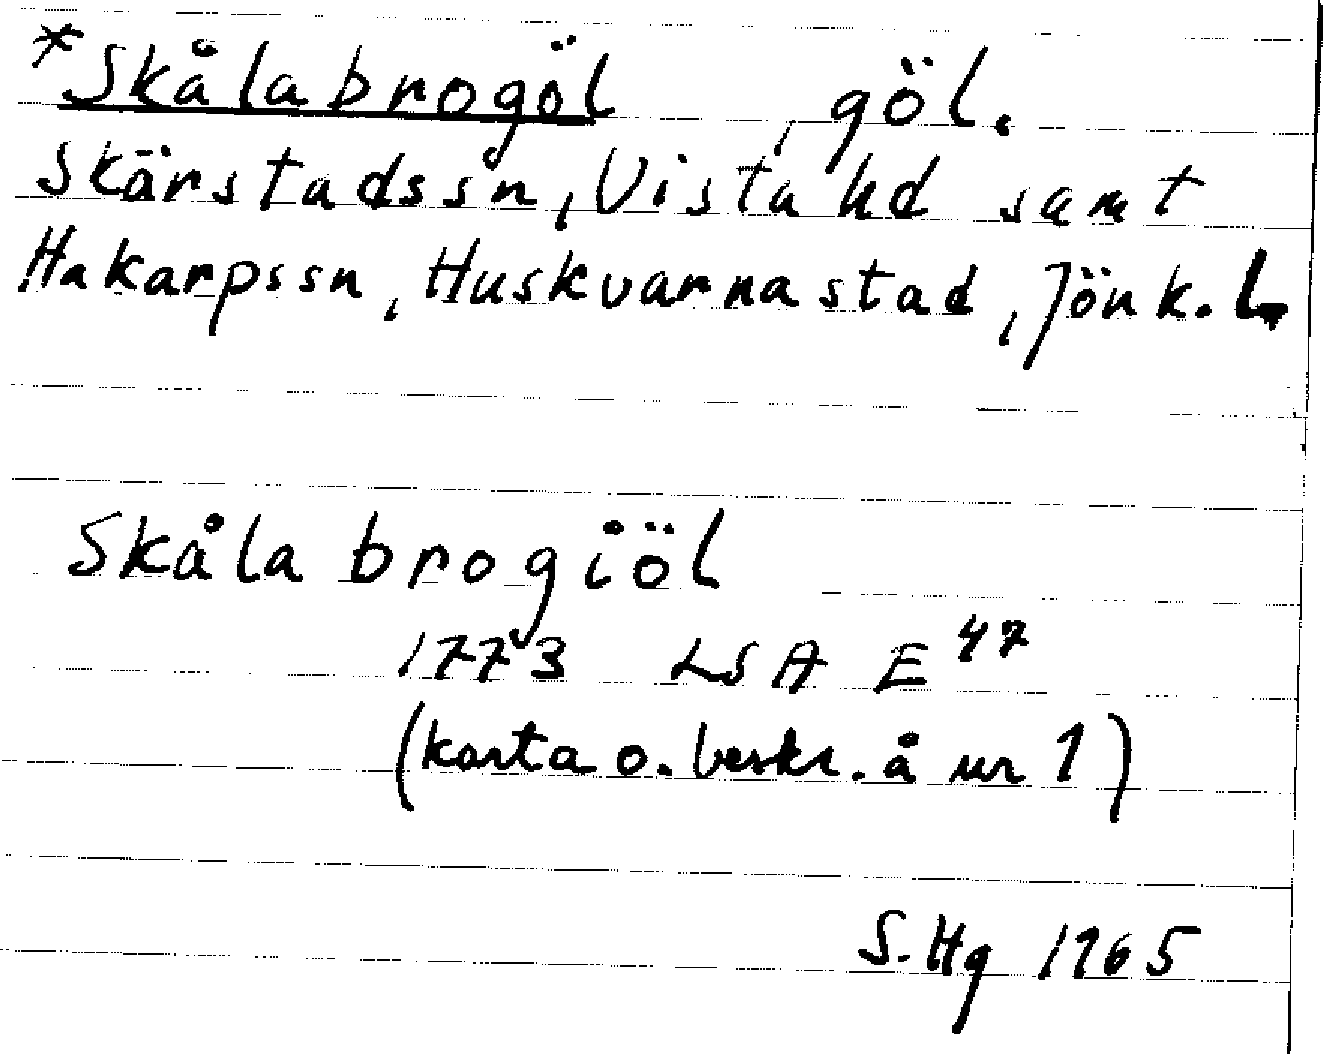 *Skålabrogöl, göl.
Skärstadssn, Vista hd samt
Hakarpssn, Huskvarna stad, Jönk. L.
Skåla brogiöl
1773 LSA E 47
(karta o. beskr. å nr 1)
S. Hg 1965